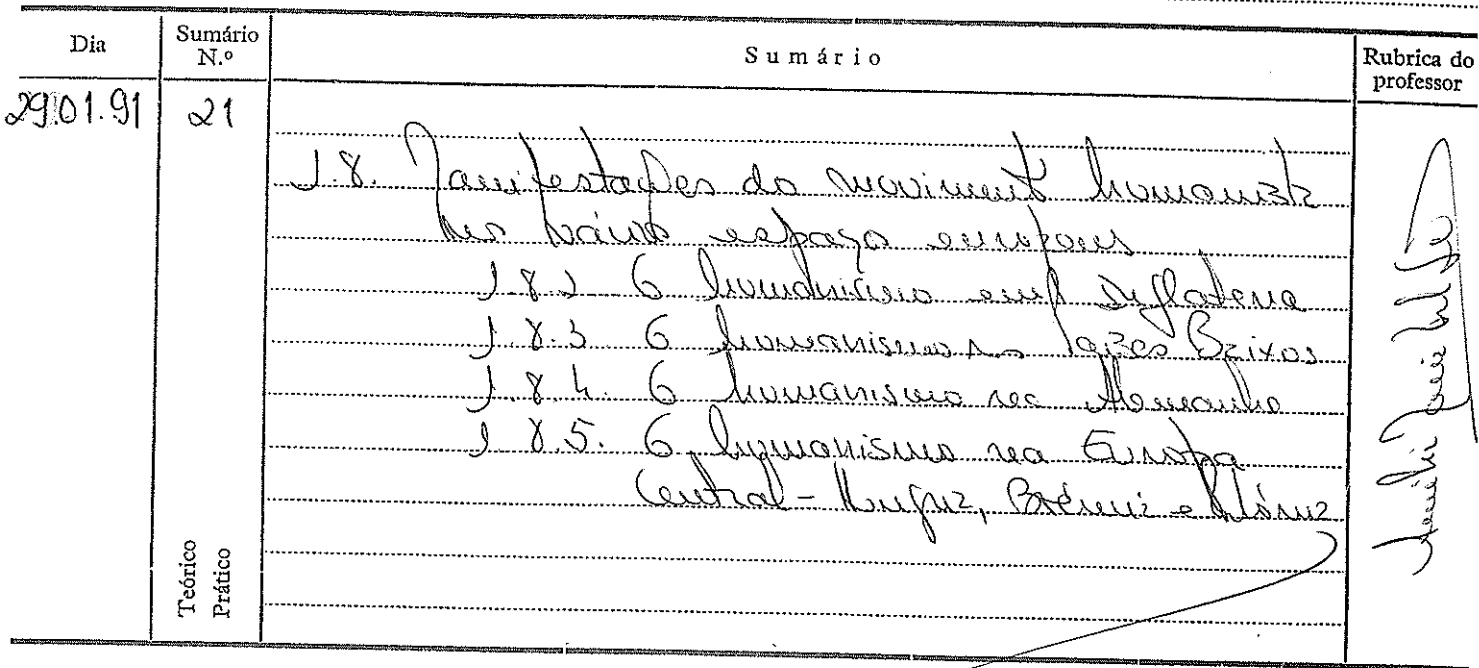 Dia
Sumário N.º
Sumário
Rubrica do professor
29.01.91
21
1.8. Manifestações do movimento humanista
nos vários espaços europeus
1.8.2 O humanismo em Inglaterra
1.8.3 O humanismo nos Países Baixos
1.8.4. O humanismo na Alemanha
1.8.5. O humanismo na Europa
Central - Hungria, Boémia e Polónia
Teórico
Prático